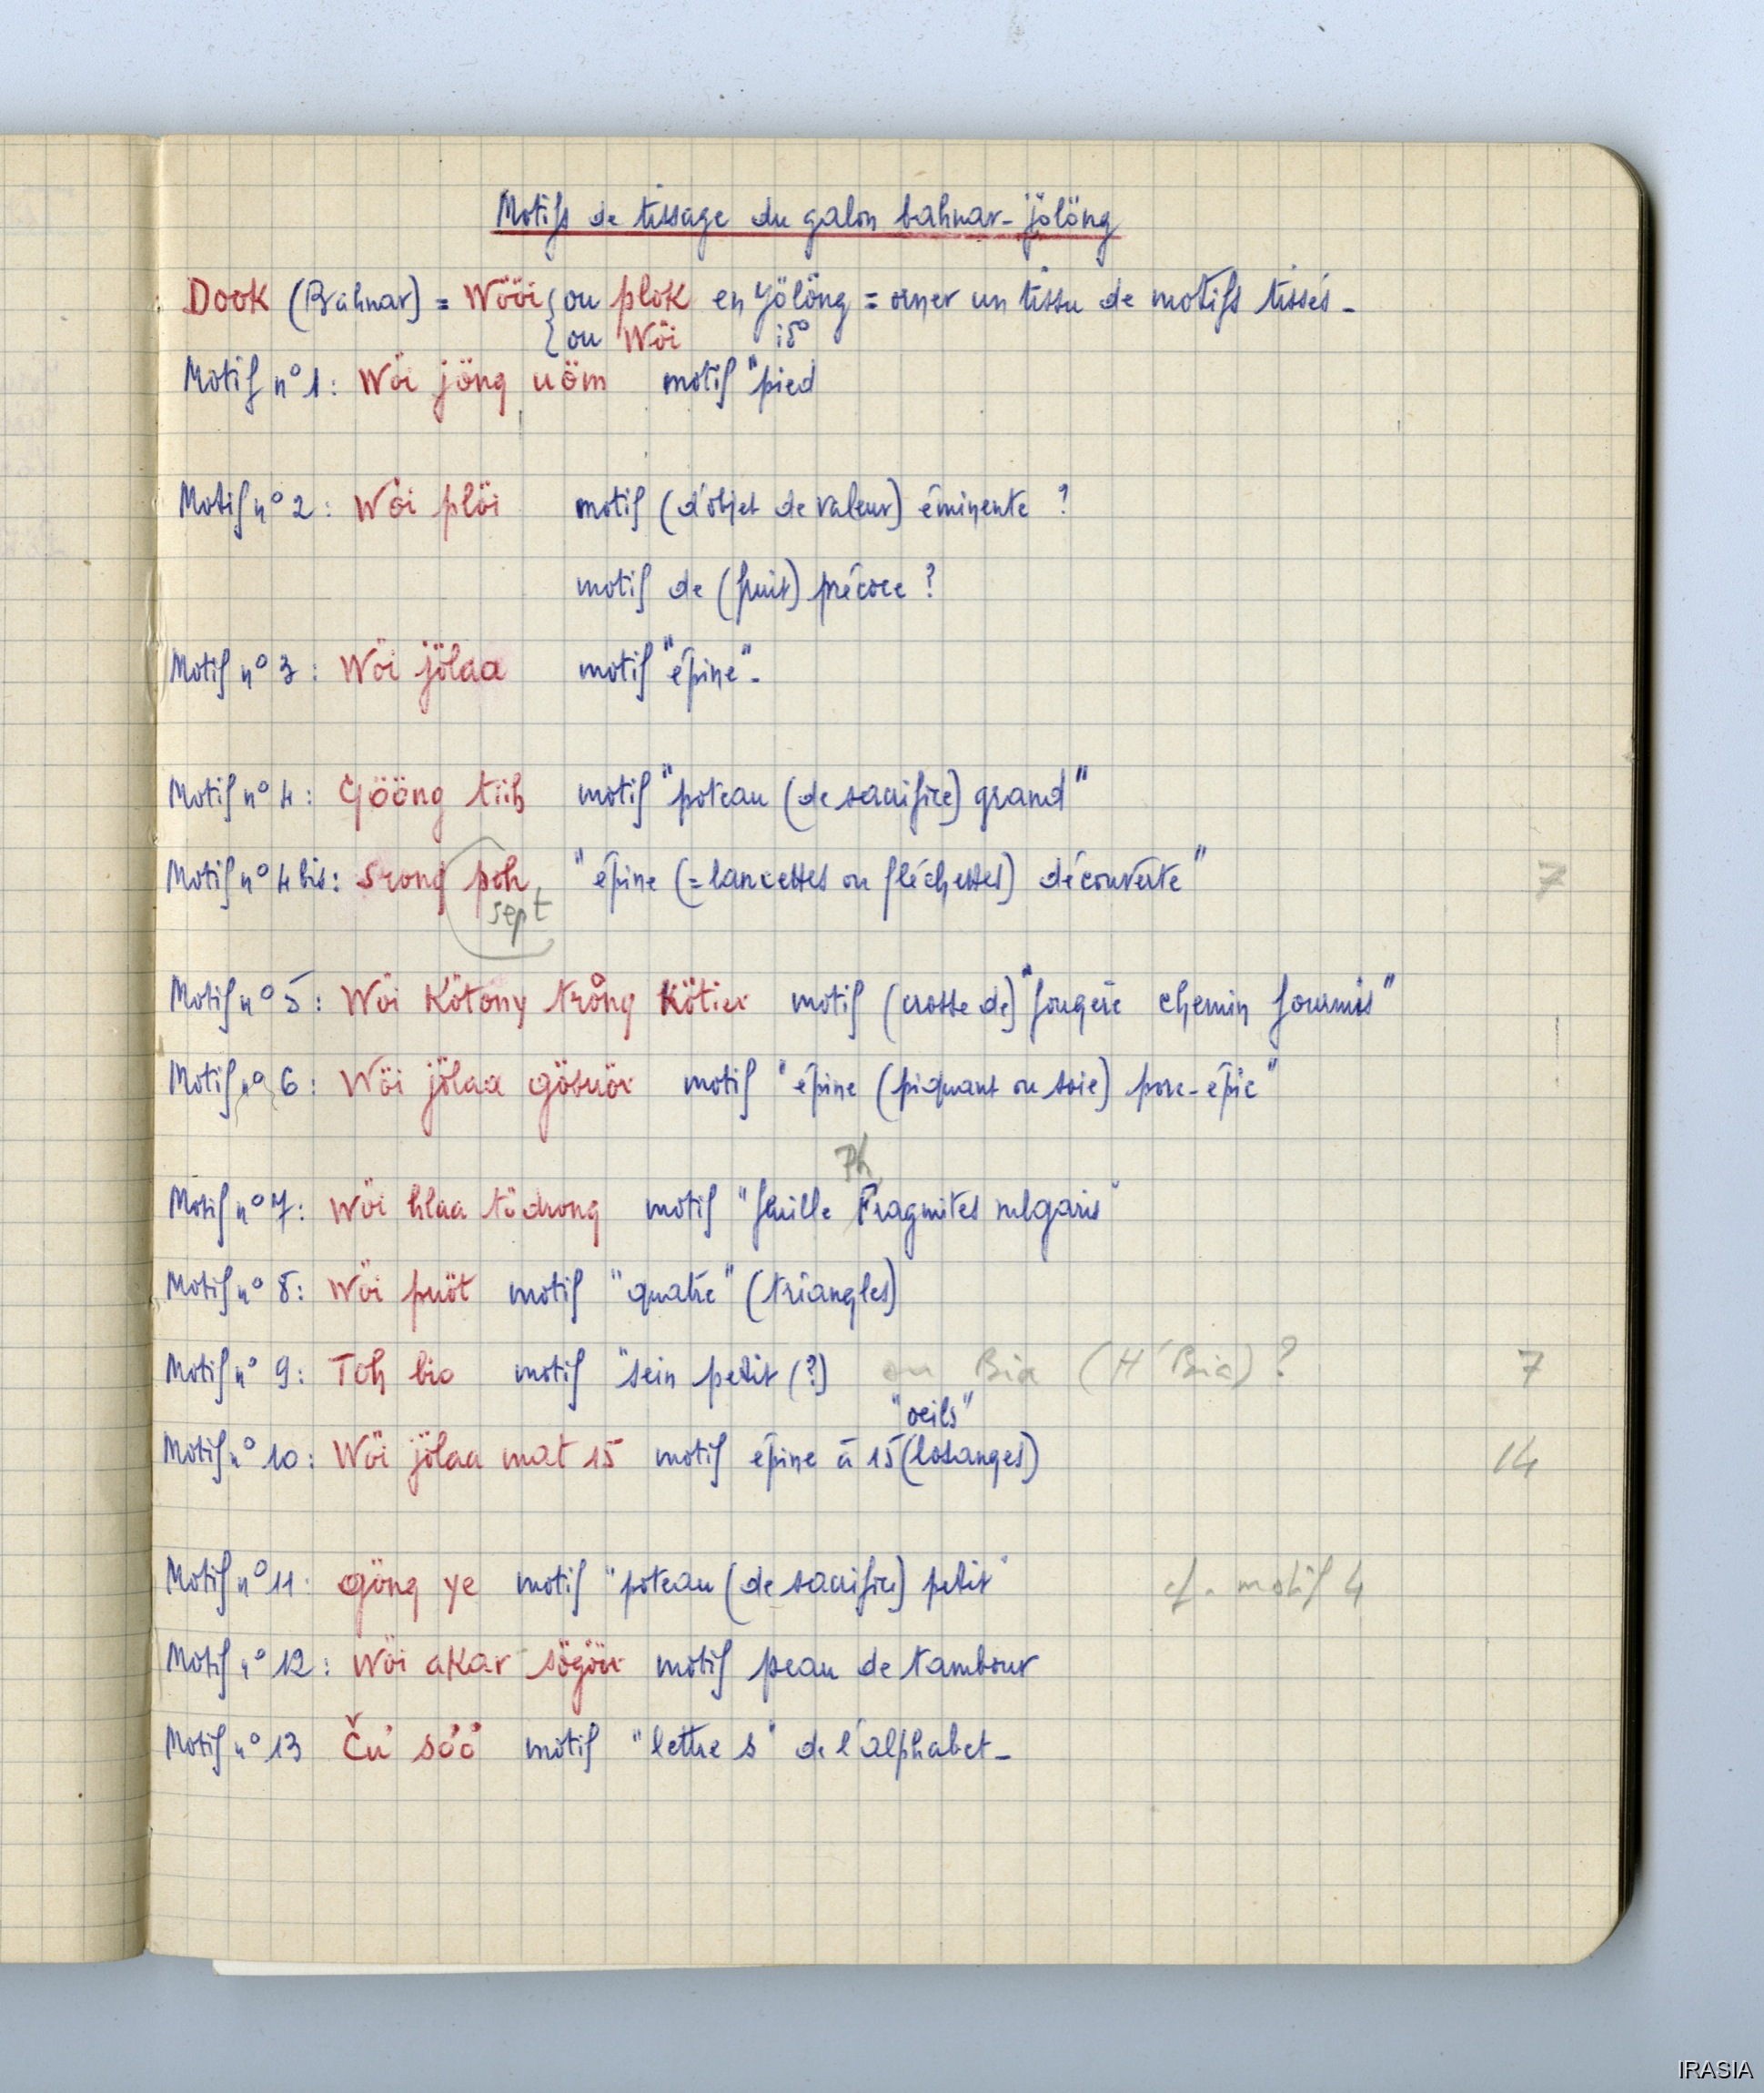 Motifs de tissage du galon bahnar-jölöng
Dook (Bahnar) = Wööi { ou plok en Yölöng = orner un tissu de motifs tissés -
{ ou Wöi id°
Motif n° 1 : Wöi jöng uöm motif "pied
Motif n° 2 : Wöi plöi motif (d'objet de valeur) éminente ?
motif de (fruit) précoce ?
Motif n° 3 : Wöi jölaa motif "épine" -
Motif n° 4 : Gööng tiih motif "poteau (de sacrifice) grand"
Motif n° 4 bis : srong poh, "épine (= lancettes ou fléchettes) découverte" 7
sept
Motif n° 5 : Wöi Kötony trông Kötier motif (crosse de) "fougère chemin fourmis"
Motif n° 6 : Wöi jölaa motif "épine (piquant ou soie) porc-épic"
Ph
Motif n° 7 : Wöi hlaa tödrong motif "feuille Fragmites vulgaris"
Motif n° 8 : Wöi puöt motif "quatre" (triangles)
Motif n° 9 : Toh bio motif "sein petit (?) ou Bia (H'Bia) ? 7
"oeils"
Motif n° 10 : Wöi jölaa mat 15 motif épine à 15 (losanges) 14
Motif n° 11 : göng ye motif "poteau (de sacrifice) petit" cf. motif 4
Motif n° 12 : Wöi akar sögör motif peau de tambour
Motif n° 13 Čư sơơ motif "lettre s" de l'alphabet -
IRASIA